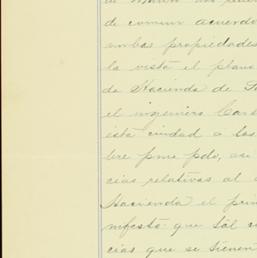 de comun acuerdo
ambas propiedades
la vista el plano
da Hacienda de
el ingeniero
esta ciudad a los
bre pme pdo, asi
cias relativas al
Hacienda el
mifesto: que sól
cias que se tienen